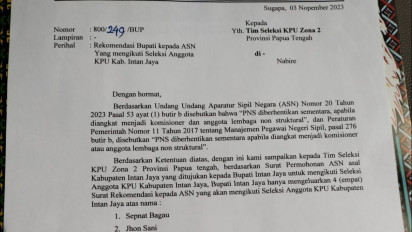 Sugapa, 03 Nopember 2023
Kepada
Nomor : 800/249/BUP
Yth. Tim Seleksi KPU Zona 2
Lampiran : -
Provinsi Papua Tengah
Perihal : Rekomendasi Bupati kepada ASN
Yang mengikuti Seleksi Anggota
di -
KPU Kab. Intan Jaya
Nabire
Dengan hormat,
Berdasarkan Undang Undang Aparatur Sipil Negara (ASN) Nomor 20 Tahun
2023 Pasal 53 ayat (1) butir b disebutkan bahwa "PNS diberhentikan sementara, apabila
diangkat menjadi komisioner dan anggota lembaga non struktural", dan Peraturan
Pemerintah Nomor 11 Tahun 2017 tentang Manajemen Pegawai Negeri Sipil, pasal 276
butir b, disebutkan "PNS diberhentikan sementara apabila diangkat menjadi komisioner
atau anggota lembaga non struktural".
Berdasarkan Ketentuan diatas, dengan ini kami sampaikan kepada Tim Seleksi
KPU Zona 2 Provinsi Papua tengah, berdasarkan Surat Permohonan ASN asal
Kabupaten Intan Jaya yang ditujukan kepada Bupati Intan Jaya untuk mengikuti Seleksi
Anggota KPU Kabupaten Intan Jaya, Bupati Intan Jaya hanya mengeluarkan 4 (empat)
Surat Rekomendasi kepada ASN yang akan mengikuti Seleksi Anggota KPU Kabupaten
Intan Jaya atas nama :
1. Sepnat Bagau
2. Jhon Sani